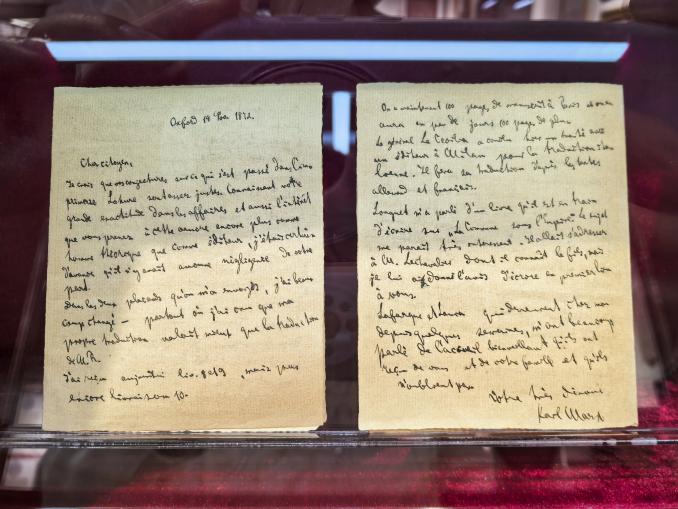 Oxford 19 Nov 1872.
Cher citoyen,
Je crois que vos conjectures sur ce qui s'est passé dans l'im
primerie Lahure sont assez justes. Connaissant votre
grande exactitude dans les affaires et aussi l'intérêt
que vous prenez à cette œuvre encore plus comme
homme théorique que comme éditeur, j'étais certain
d'avance qu'il n'y avait aucune négligence de votre
part.
Dans les deux placards qu'on m'a envoyés, j'ai beau
coup changé — partout où j'ai cru que ma
propre traduction valait mieux que la traduction
de M. R.
J'ai reçu aujourd'hui liv. 8 et 9, mais pas
encore livraison 10.
On a maintenant 100 page, de manuscrit à Paris et on en
aura en peu de jours 100 page, de plus.
Le général La Cecilia a conclu hier un traité avec
un éditeur à Milan pour la traduction ita
lienne. Il fera sa traduction d'après les textes
allemand et français.
Longuet m'a parlé d'un livre qu'il est en train
d'écrire sur "La Commune sous l'Empire". Le sujet
me parait très intéressant. Il allait s'adresser
à M. Lechevalier dont il connait le fils, mais
je lui ai donné l'avis d'écrire en premier lieu
à vous.
Lafargue et Laura qui demeurent chez moi
depuis quelques semaines, m'ont beaucoup
parlé de l'accueil bienveillant qu'ils ont
reçu de vous et de votre famille et qu'ils
n'oublient pas.
Votre très dévoué
Karl Marx